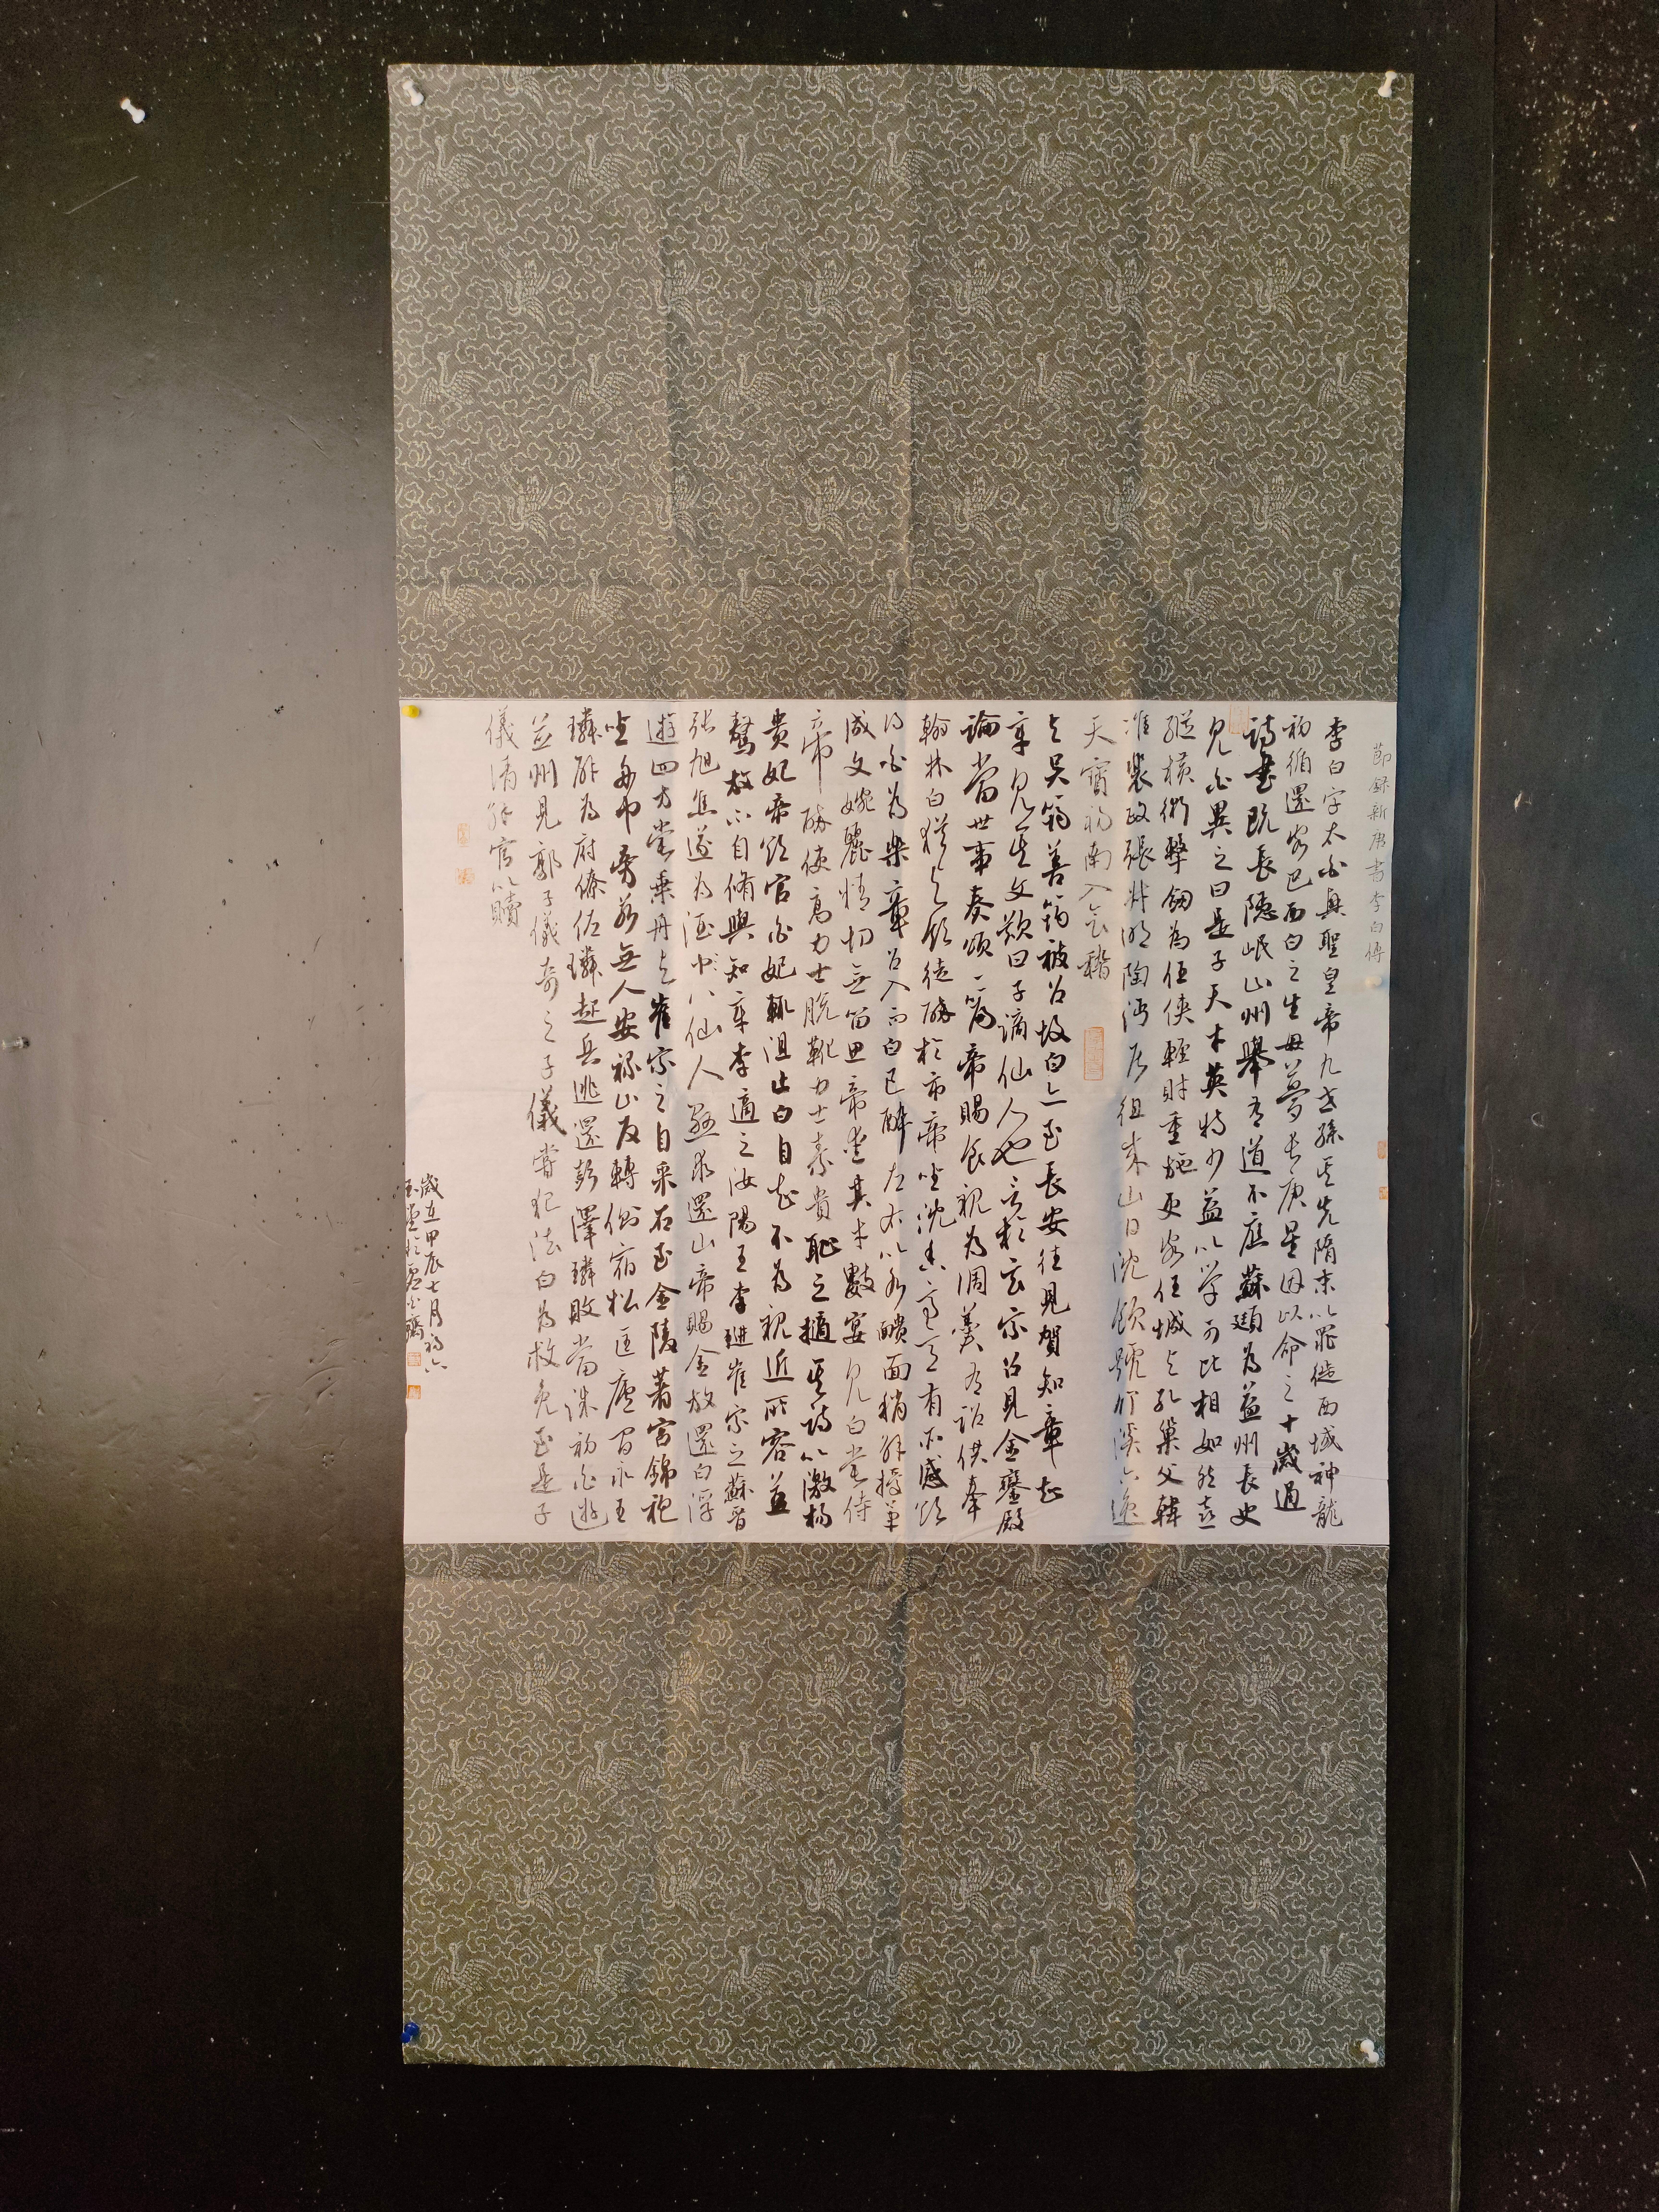 節録新唐書李白傳
李白字太白興聖皇帝九世孫其先隋末以罪徙西域神龍
初循還客巴西白之生母夢長庚星因以命之十歲通
詩書既長隱岷山州舉有道不應蘇頲為益州長史
見白異之曰是子天才英特少益以学可比相如然喜
縱橫術擊劒為任俠輕財重施更客任城与孔巢父韓
准裴政張叔明陶沔居徂徠山日沈飲號竹溪六逸
天寶初南入會稽
与吴筠善筠被召故白亦至長安往見賀知章知
章見其文歎曰子謫仙人也言於玄宗召見金鑾殿
論當世事奏頌一篇帝賜食親為調羹有詔供奉
翰林白猶与飲徒醉於市帝坐沈香亭子有所感欲
得白為樂章召入而白已醉左右以水靧面稍解授筆
成文婉麗精切無留思帝愛其才數宴見白嘗侍
帝醉使高力士脫靴力士素貴恥之擿其詩以激楊
貴妃帝欲官白妃輒沮止白自知不為親近所容益
驁放不自脩與知章李適之汝陽王李璡崔宗之蘇晉
張旭焦遂為酒中八仙人懇求還山帝賜金放還白浮
遊四方嘗乘舟与崔宗之自采石至金陵著宮錦袍
坐舟中旁若無人安祿山反轉側宿松匡廬間永王
璘辟為府僚佐璘起兵逃還彭澤璘敗當誅初白遊
并州見郭子儀奇之子儀嘗犯法白為救免至是子
儀請解官以贖
歲在甲辰七月初六